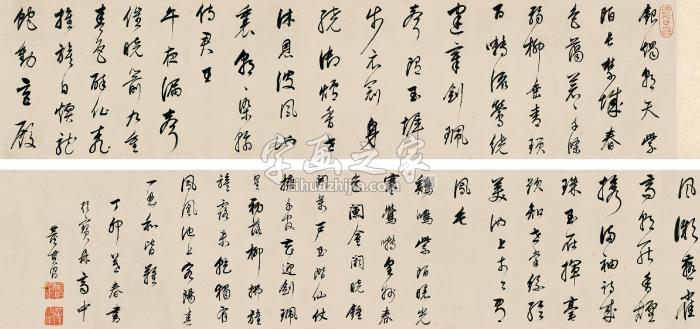 銀燭朝天紫
陌長禁城春
色藹蒼〃千條
弱柳垂青瑣
百囀流鶯繞
建章劍珮
聲隨玉墀
步衣冠身
繞御爐香共
沐恩波鳳池
裏朝〃染翰
侍君王
午夜漏聲
催曉箭九重
春色醉仙桃
旌旗日煖龍
蛇動宮殿
風微燕雀
高朝罷香煙
攜滿袖詩成
珠玉在揮毫
欲知世掌絲綸
美池上于今有
鳳毛
雞鳴紫陌曙光
寒鶯囀皇州春
色闌金闕曉鐘
開萬戶玉階仙仗
擁千官花迎劍珮
星初落柳拂旌
旗露未乾獨有
鳳凰池上客陽春
一曲和皆難
丁卯首春書
於寶鼎齋中
董其昌
字画之家